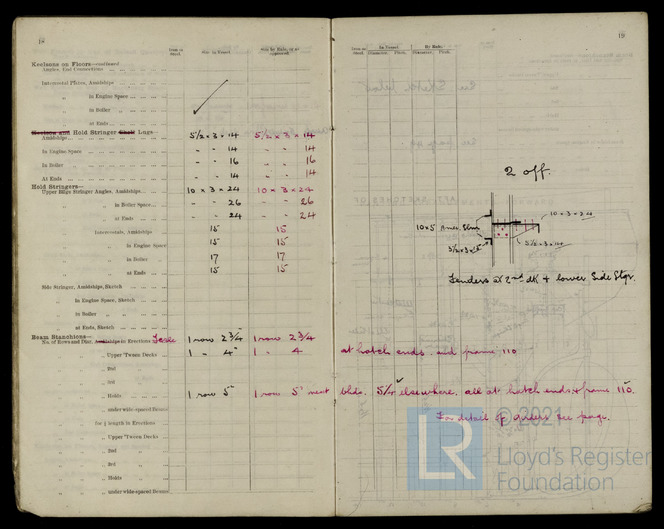 18
Iron or Steel. Size in Vessel Size by Rule, or as approved.
Keelsons on Floors—continued
Angles, End Connections
Intercostal Plates, Amidships
„ in Engine Space
„ in Boiler „
„ at Ends
Keelson and Hold Stringer Shell Lugs—
Amidships 5½ x 3 x 14 5½ x 3 x 14
In Engine Space - - 14 14
In Boiler „ - - 16 16
At Ends - - 14 14
Hold Stringers—
Upper Bilge Stringer Angles, Amidships 10 x 3 x 24 10 x 3 x 24
„ in Boiler Space - - 26 - - 26
„ at Ends - - 24 - - 24
Intercostals, Amidships 15 15
„ in Engine Space 15 15
„ in Boiler „ 17 17
„ at Ends 15 15
Side Stringer, Amidships, Sketch
In Engine Space, Sketch
In Boiler „ „
at Ends, Sketch
Beam Stanchions—
No. of Rows and Diar. Amidships in Erections 1 row 2¾ 1 row 2¾
„ Upper 'Tween Decks 1 „ 4" 1 „ 4 at hatch ends and frame 110
„ 2nd
„ 3rd
„ Holds 1 row 5" 1 row 5" next bhds. 5¼ elsewhere. all at hatch ends & frame 110.
„ under wide-spaced Beams
for ½ length in Erections
„ Upper 'Tween Decks
„ 2nd „
„ 3rd „
„ Holds „
„ under wide-spaced Beams
19
Iron or Steel. In Vessel By Rule.
Diameter. Pitch. Diameter. Pitch.
2 off.
10 x 3 x 24
10 x 5
5½ x 3 x 14
5½ x 3 x 14
at 2nd dk & lower Side Stgr.
For detail of girders see page.
© 2021
LR
Lloyd's Register
Foundation